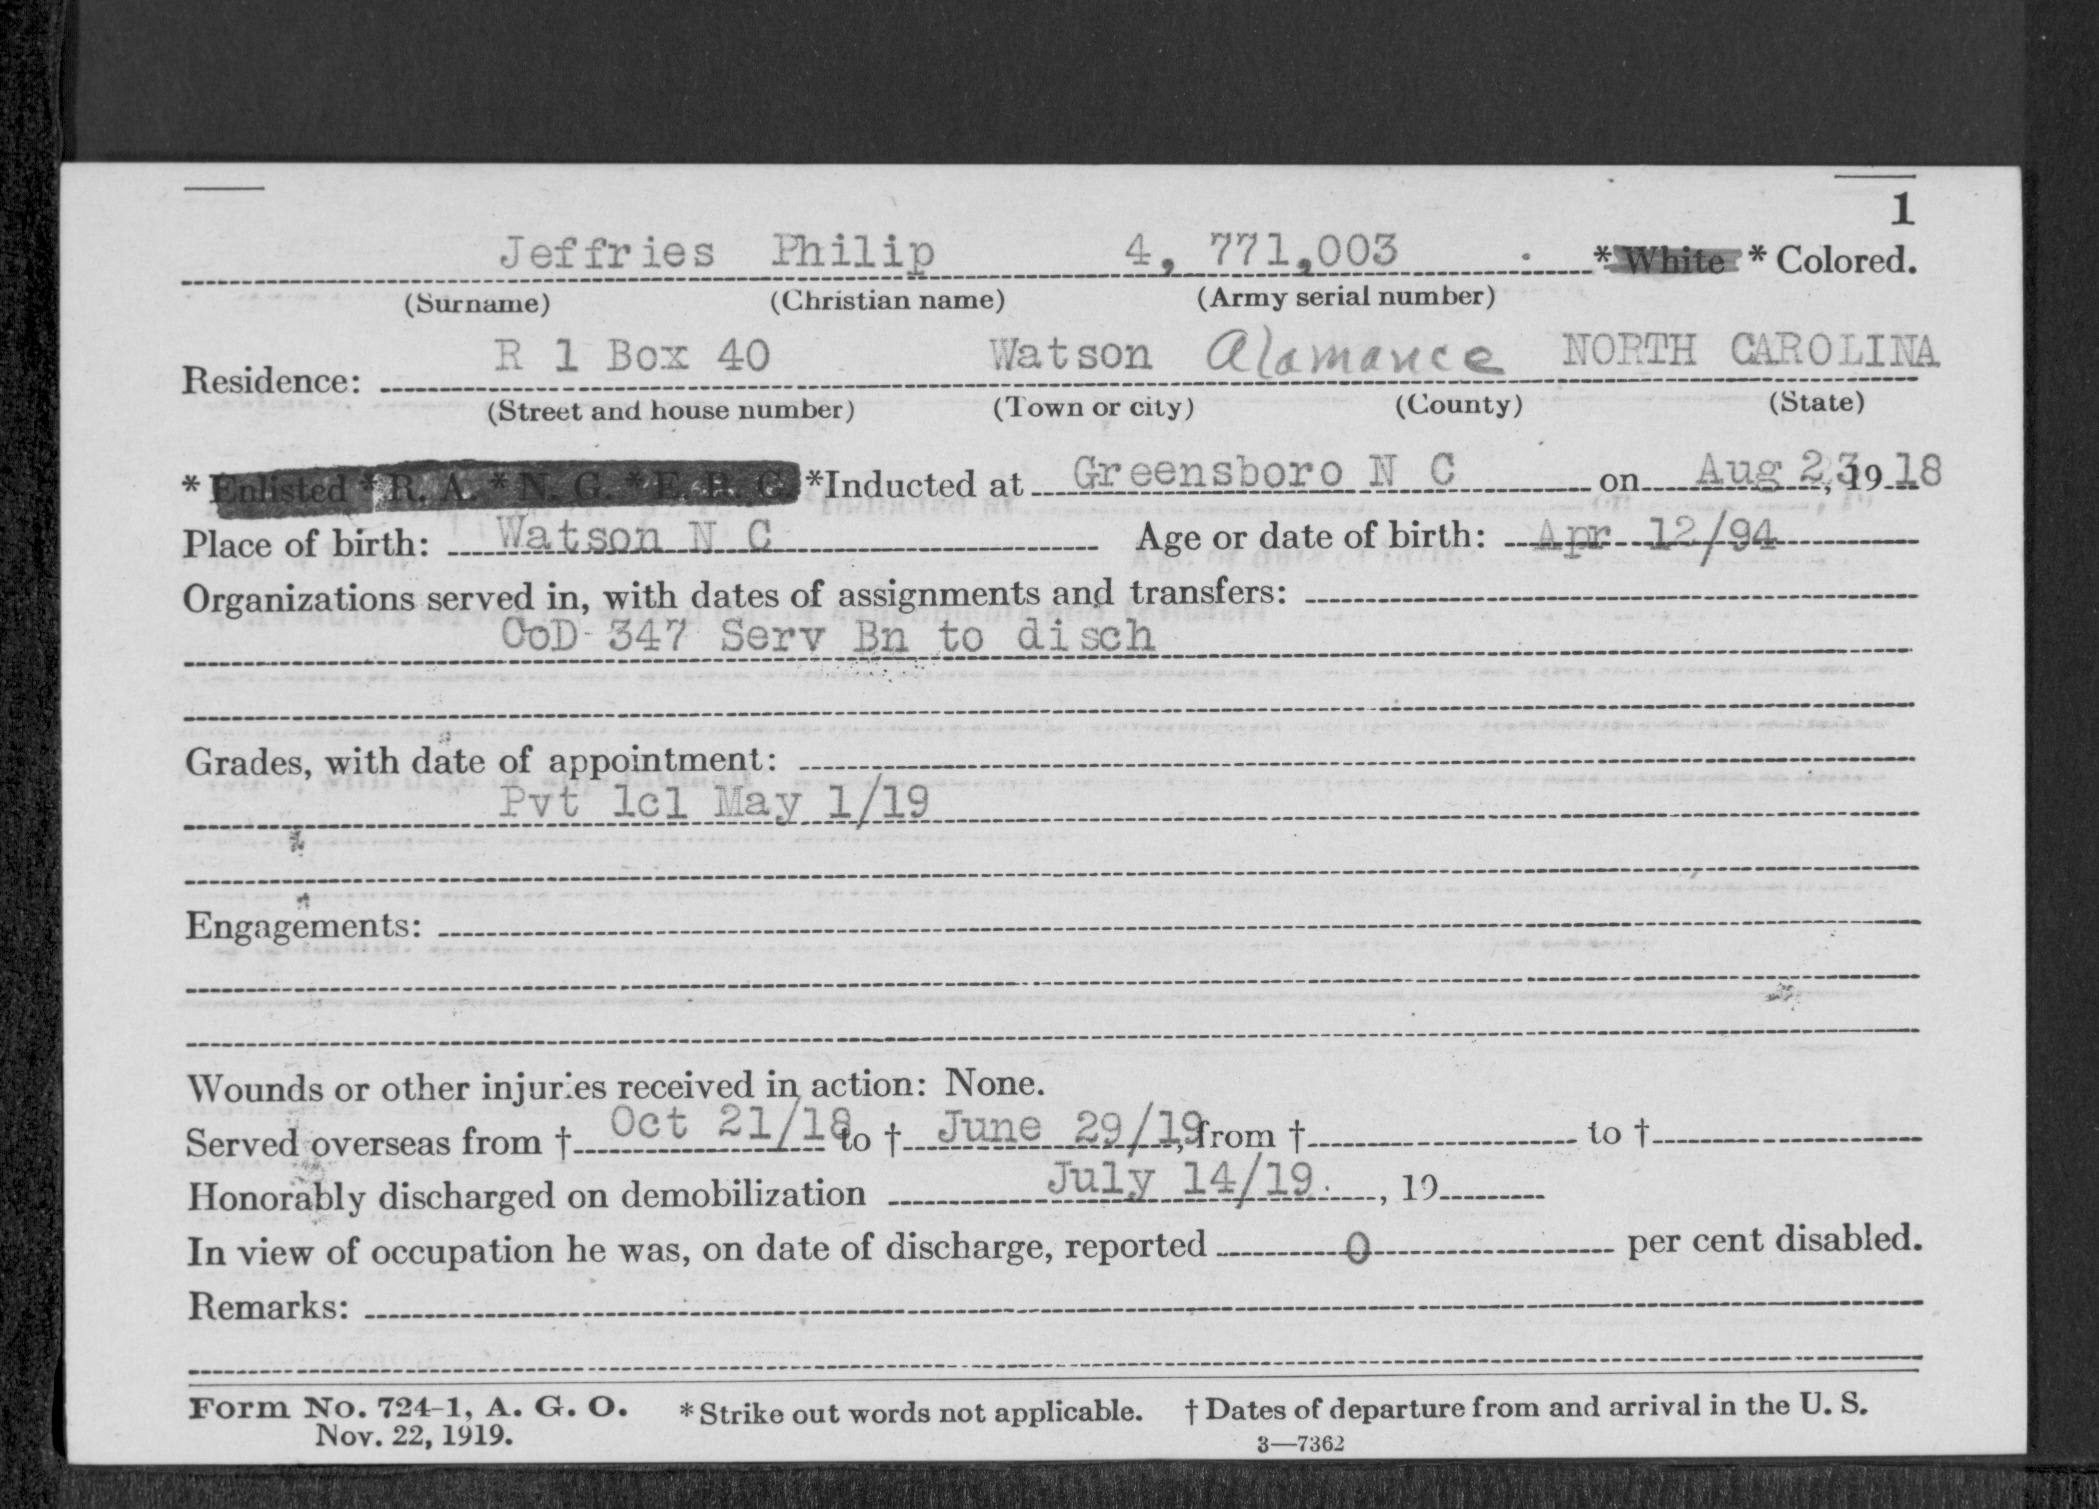 1
Jeffries Philip 4, 771,003 * White * Colored.
(Surname) (Christian name) (Army serial number)
Residence: R 1 Box 40 Watson Alamance NORTH CAROLINA
(Street and house number) (Town or city) (County) (State)
* Enlisted * R. A. * N. G. * E. R. C. *Inducted at Greensboro N C on Aug 23, 19 18
Place of birth: Watson N C Age or date of birth: Apr 12/94
Organizations served in, with dates of assignments and transfers:
CoD 347 Serv Bn to disch
Grades, with date of appointment:
Pvt 1cl May 1/19
Engagements:
Wounds or other injuries received in action: None.
Served overseas from † Oct 21/18 to † June 29/19, from † to †
Honorably discharged on demobilization July 14/19, 19
In view of occupation he was, on date of discharge, reported 0 per cent disabled.
Remarks:
Form No. 724-1, A. G. O. * Strike out words not applicable. † Dates of departure from and arrival in the U. S.
Nov. 22, 1919. 3—7362